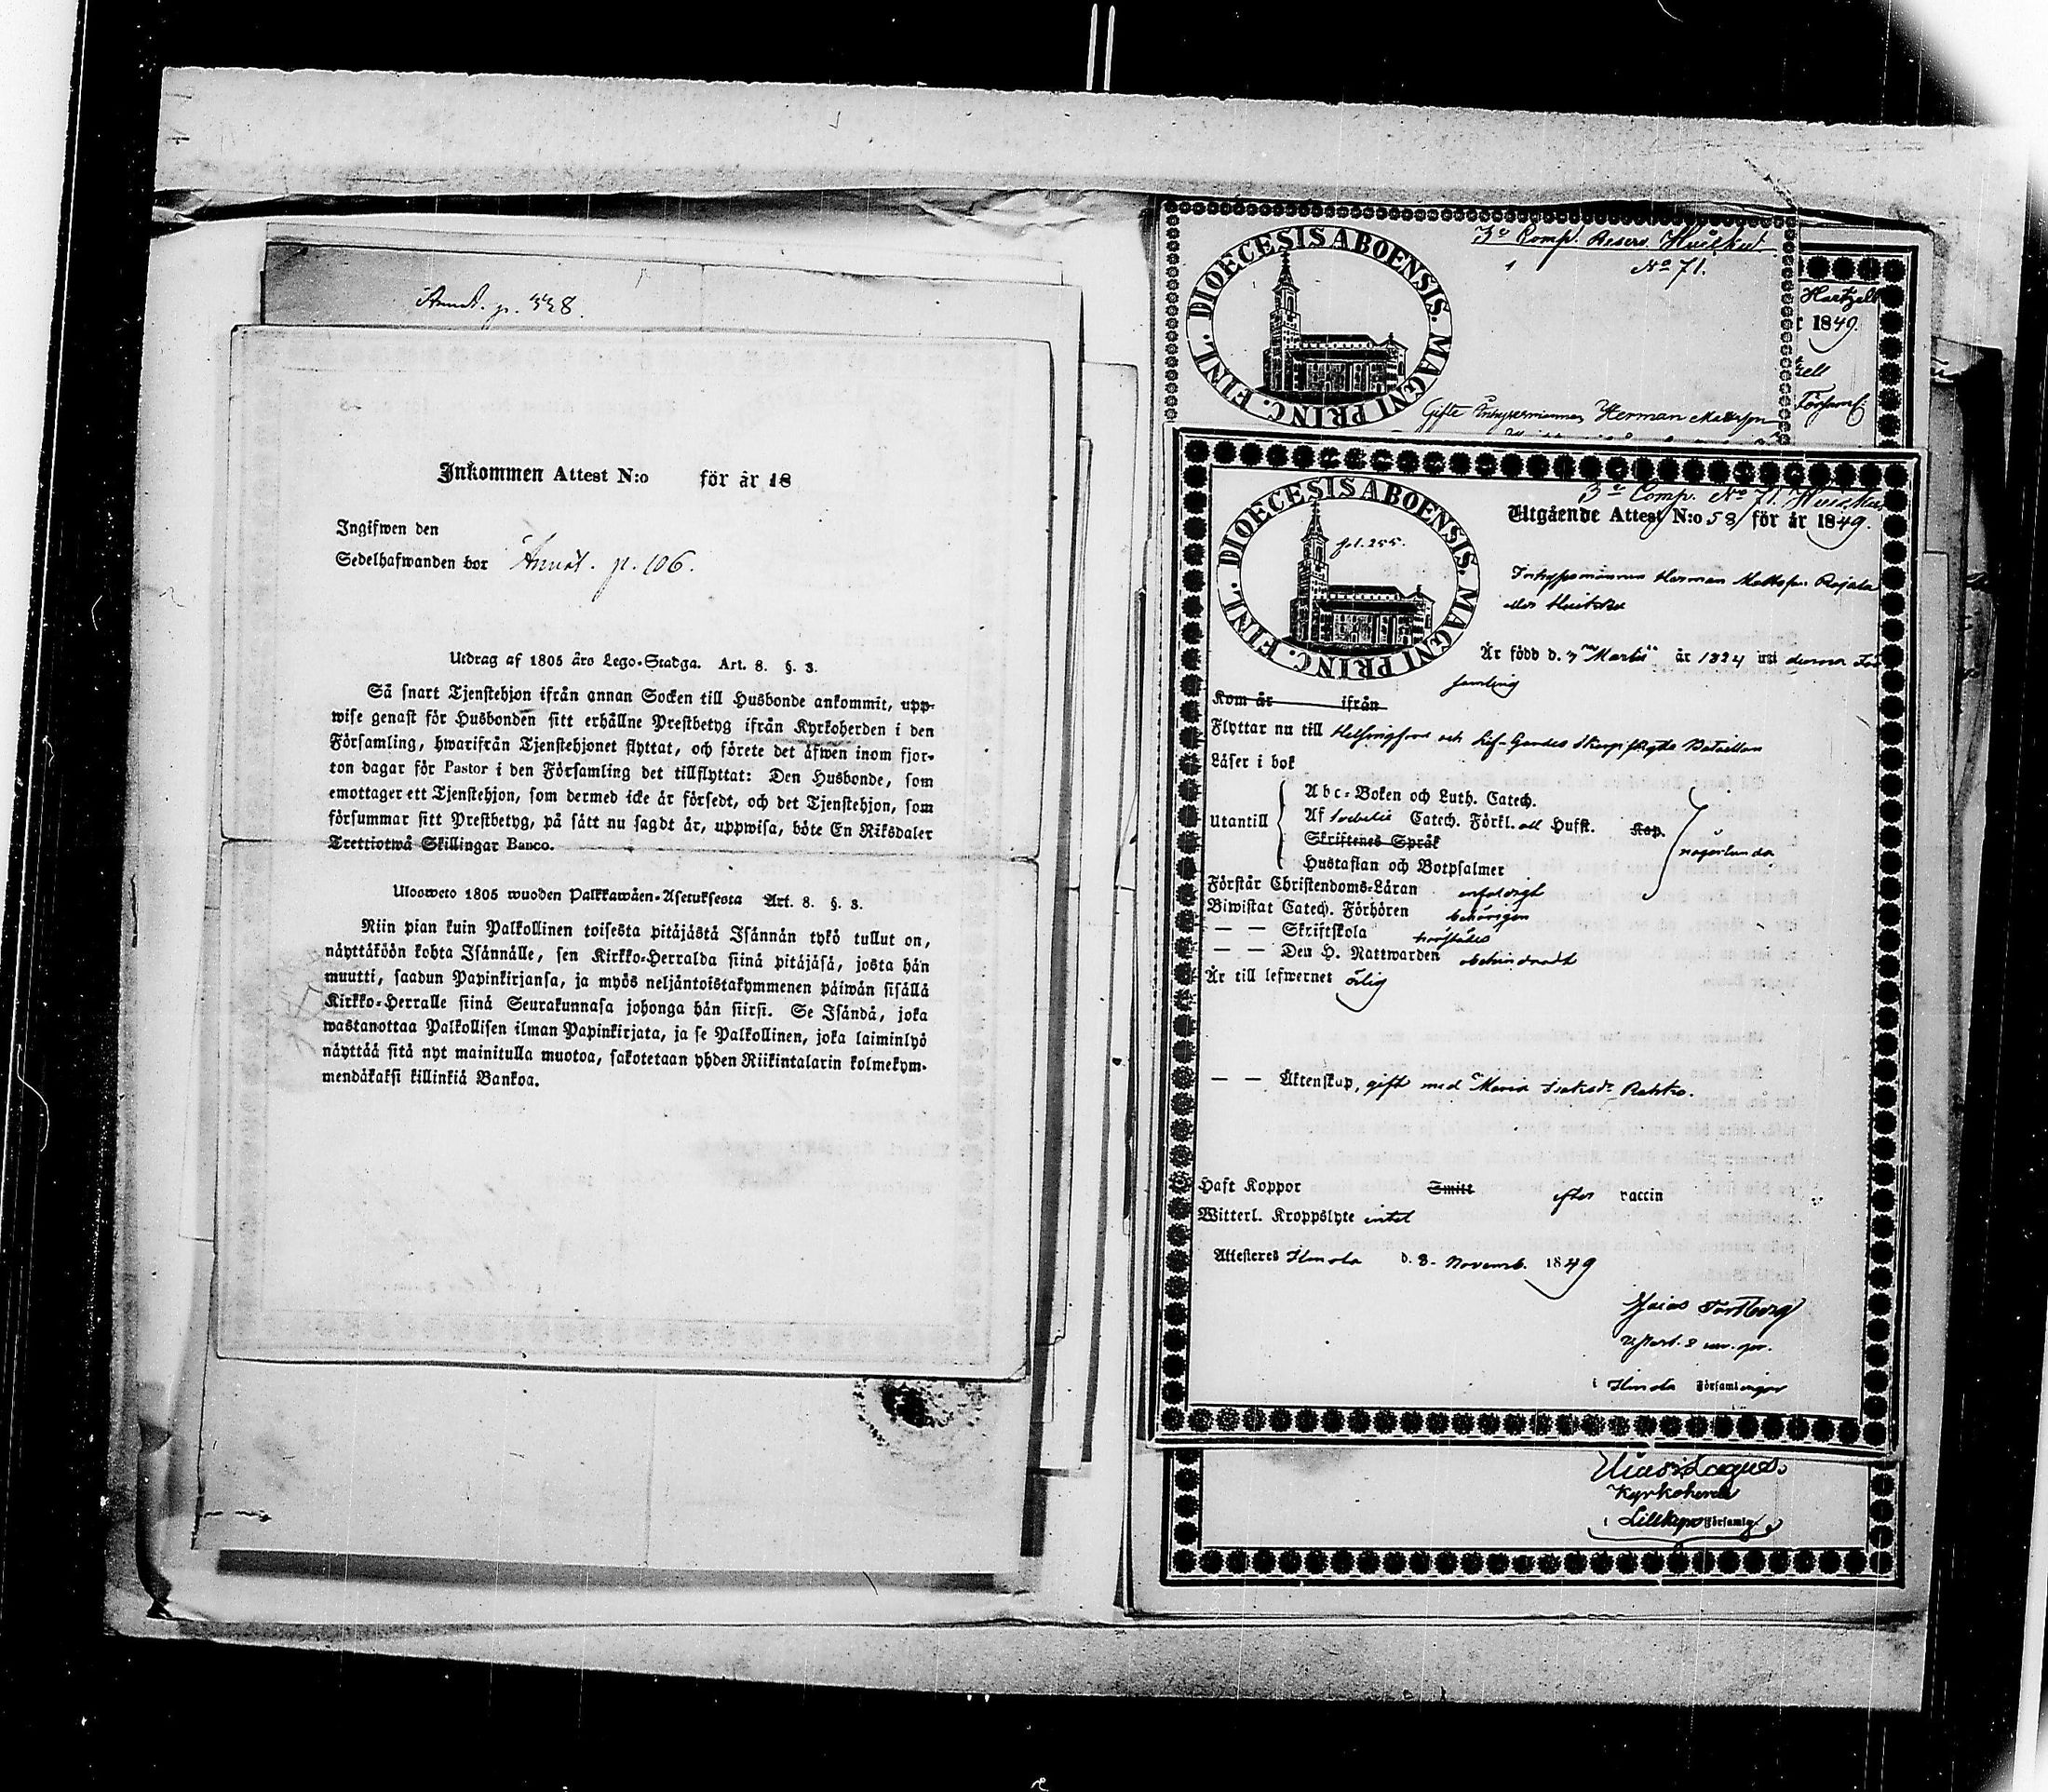 Annot. p. 338.
Inkommen Attest N:o för år 18
Ingifwen den
Sedelhafwanden bor Annot. p. 106.
Utdrag af 1805 års Lego-Stadga. Art. 8. §. 3.
Så snart Tjenstehjon ifrån annan Socken till Husbonde ankommit, upp-
wise genast för Husbonden sitt erhållne Prestbetyg ifrån Kyrkoherden i den
Församling, hwarifrån Tjenstehjonet flyttat, och förete det äfwen inom fjor-
ton dagar för Pastor i den Församling det tillflyttat: Den Husbonde, som
emottager ett Tjenstehjon, som dermed icke är försedt, och det Tjenstehjon, som
försummar sitt Prestbetyg, på sätt nu sagdt är, uppwisa, böte En Riksdaler
Trettiotwå Skillingar Banco.
Ulosweto 1805 wuoden Palkkawäen-Asetuksesta Art. 8. §. 3.
Niin pian kuin Palkollinen toisesta pitäjästä Isännän tykö tullut on,
näyttäköön kohta Isännälle, sen Kirkko-Herralda siinä pitäjäsä, josta hän
muutti, saadun Papinkirjansa, ja myös neljäntoistakymmenen päiwän sisällä
Kirkko-Herralle siinä Seurakunnasa johonga hän siirsi. Se Isändä, joka
wastanottaa Palkollisen ilman Papinkirjata, ja se Palkollinen, joka laiminlyö
näyttää sitä nyt mainitulla muotoa, sakotetaan yhden Riikintalarin kolmekym-
mendäkaksi killinkiä Bankoa.
3e Comp. Reserv. Huiskut
No 71.
DIOECESIS ABOENSIS. MAGNI PRINC. FINL.
Gifte Herman Mattsson
Hartzell
r 1849.
Församl.
3e Comp. No 71. Huiskus
Utgående Attest N:o 58 för år 1849.
DIOECESIS ABOENSIS. MAGNI PRINC. FINL.
fol. 255.
Herman Mattsson Rajala
Är född d. 3 Martii år 1824 uti denna För
samling
Kom år ifrån
Flyttar nu till Helsingfors och Lif-Gardes Skarpskytte Bataillon
Läser i bok
Utantill
Abc-Boken och Luth. Catech.
Af Catech. Förkl. Husst. Kap.
Skriftenes Språk
Hustaflan och Botpsalmer
någorlunda
Förstår Christendoms-Läran enfaldigt
Biwistat Catech. Förhören behörigen
— — Skriftskola
— — Den H. Nattwarden obehindradt
Är till lefwernet ärlig
— — Äktenskap, gift med Maria Isaksdr
Haft Koppor Smitt efter vaccin
Witterl. Kroppslyte intet
Attesteras Ilmola d. 8. Novemb. 1849
Esaias
i Ilmola Församlingar
Elias Lagus.
Kyrkoherde
i Lillkyro Församlg.